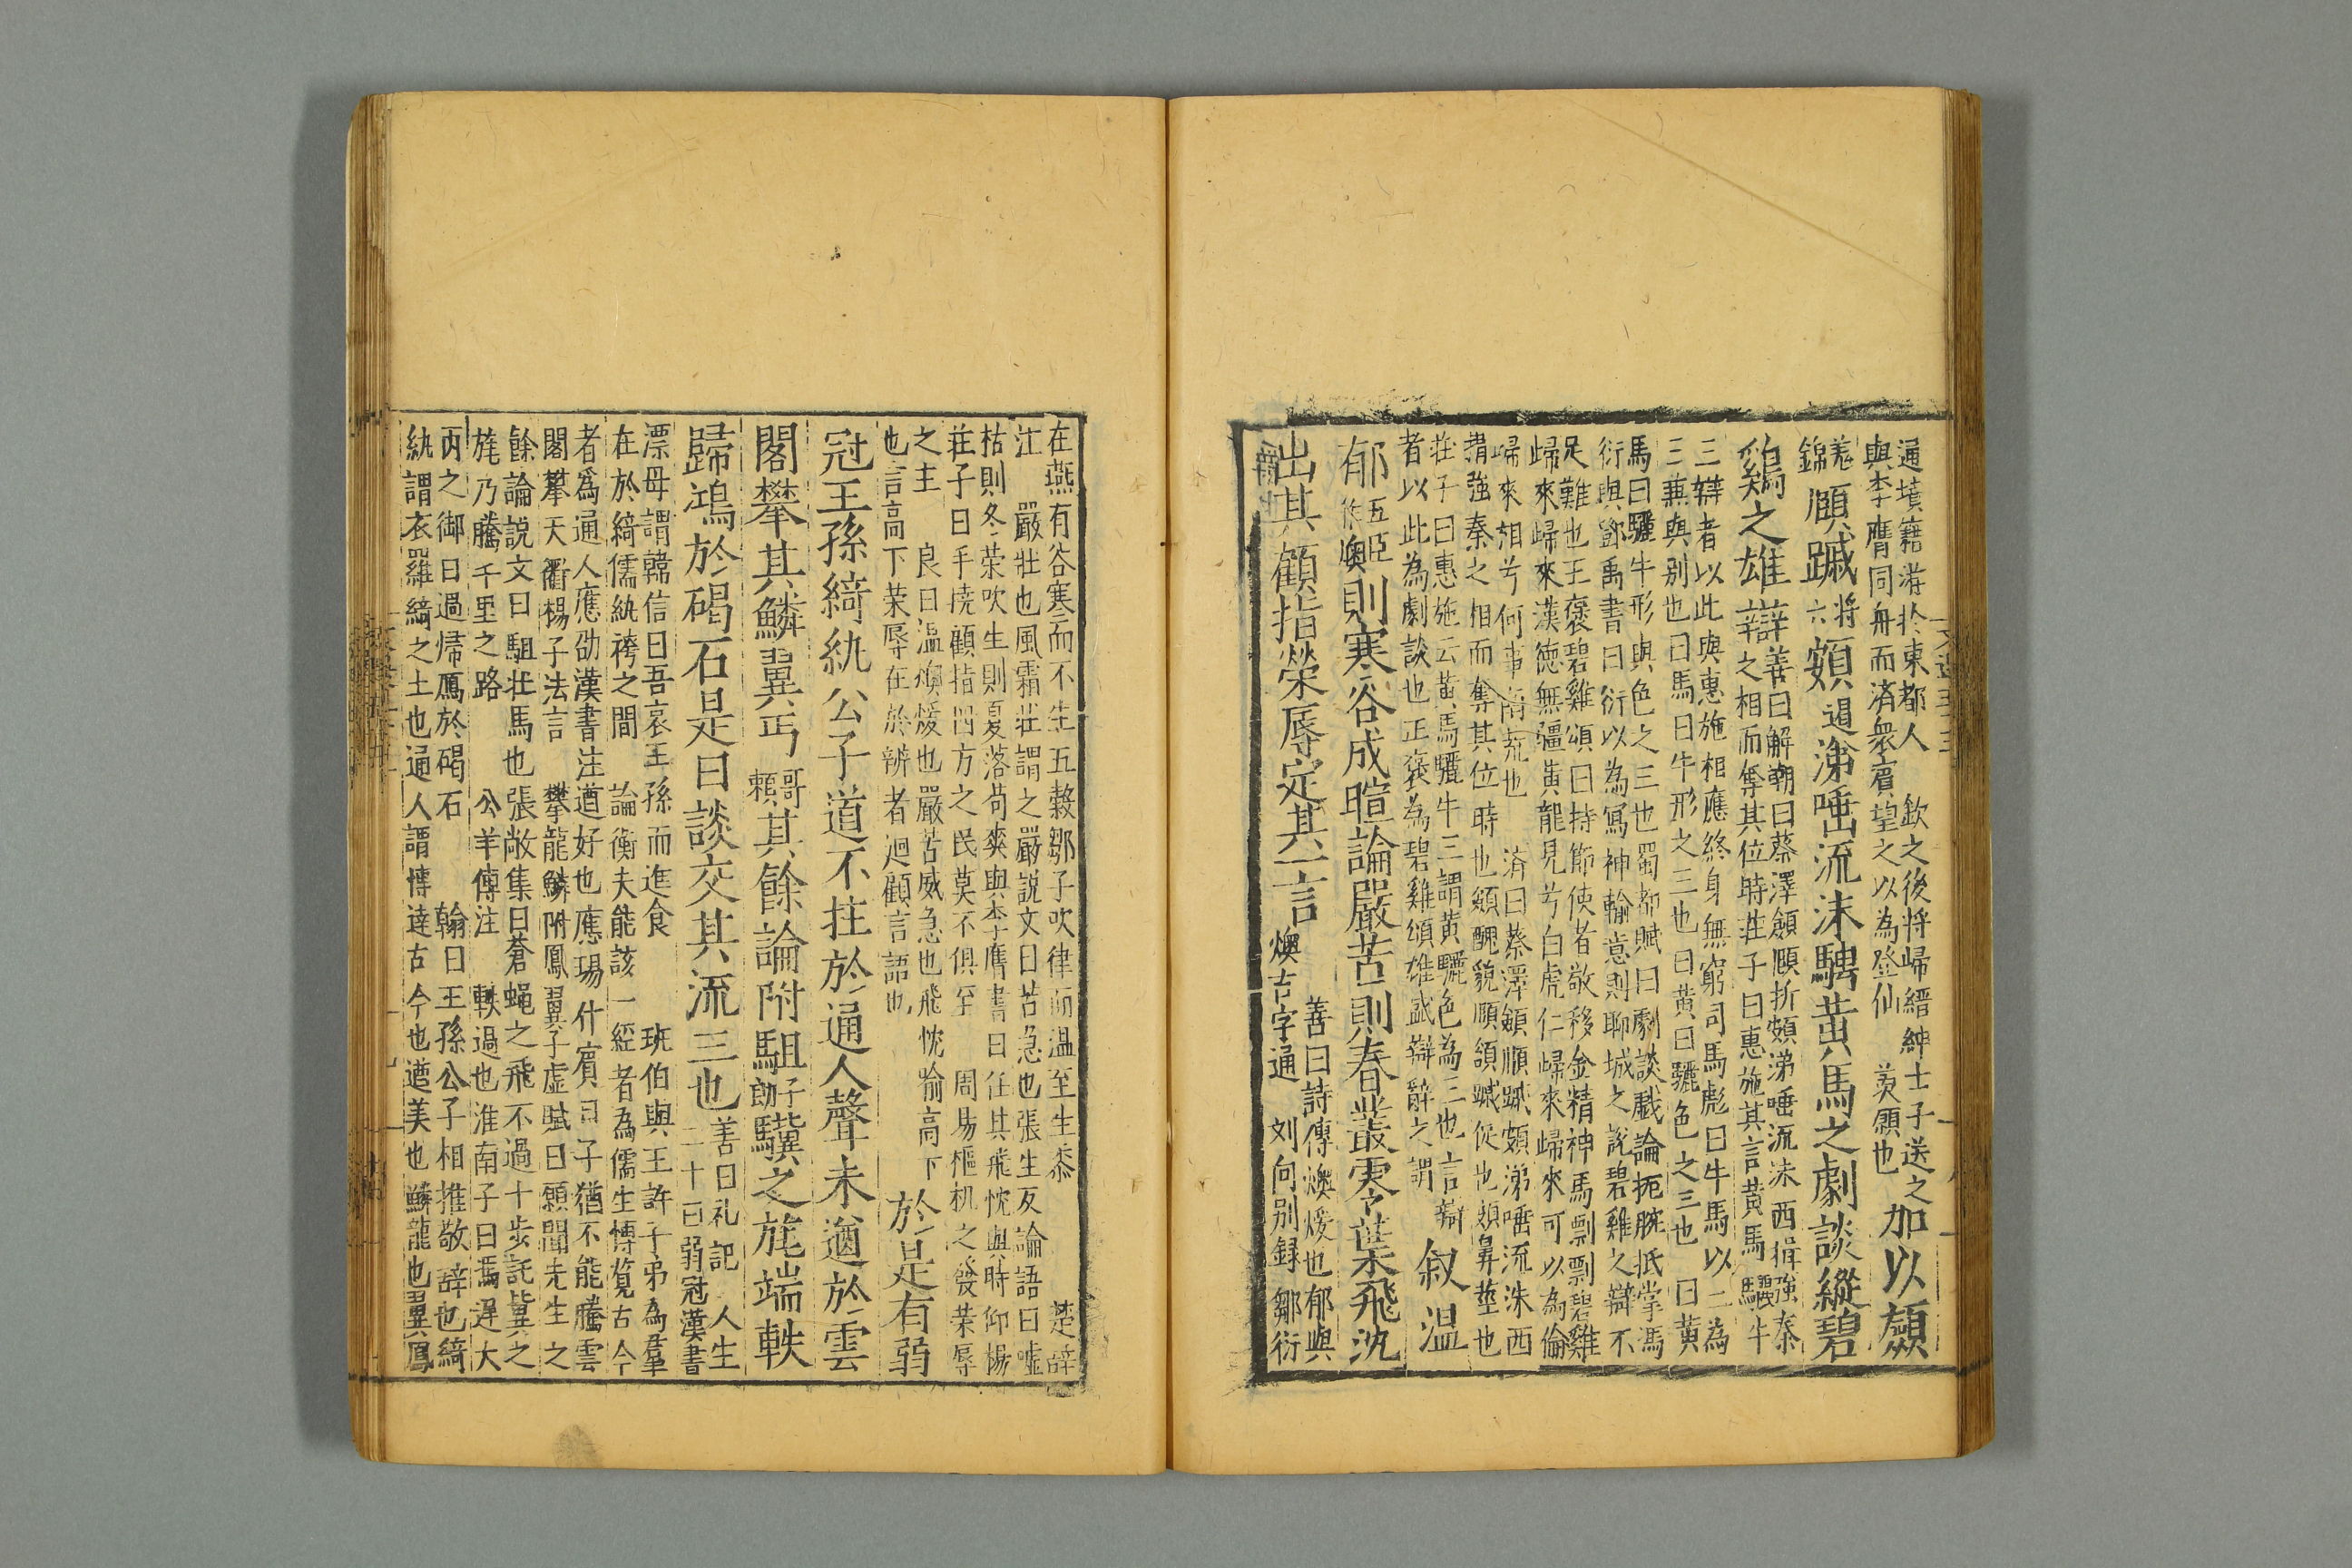 通墳籍游於東都人　欽之後將歸縉紳士子送之
與李膺同舟而濟衆賓望之以為登仙　羡願也
加以顩
羡錦
頤蹙
將六
頞
遏
涕唾流沫騁黃馬之劇談縱碧
鷄之雄辯
善曰解嘲曰蔡澤顩頤折頞涕唾流沫西揖強秦
之相而奪其位時莊子曰惠施其言黃馬驪牛
三辯者以此與惠施相應終身無窮司馬彪曰牛馬以二為
三兼與别也曰馬曰牛形之三也曰黃曰驪色之三也　曰黃
馬曰驪牛形與色之三也蜀都賦曰劇談戲論扼腕抵掌馮
衍與鄧禹書曰衍以為寫神輸意則聊城之說碧雞之辯不
足難也王褒碧雞頌曰持節使者敬移金精神馬剽剽碧雞
歸來歸來漢德無疆黃龍見兮白虎仁歸來歸來可以為倫
歸來翔兮何事南荒也　濟曰蔡澤顩頤蹙頞涕唾流沫西
揖強秦之相而奪其位時也顩醜貌頤頷蹙促也頞鼻莖也
莊子曰惠施云黃馬驪牛三謂黃驪色為三也言辯
者以此為劇談也王褒為碧雞頌雄盛辯辭之謂
叙温
郁
五臣
作燠
則寒谷成暄論嚴苦則春叢零葉飛沈
出其顧指榮辱定其一言
善曰詩傳燠煖也郁與
燠古字通　刘向别録鄒衍
在燕有谷寒而不生五穀鄒子吹律而温至生黍　楚辞
江　嚴壯也風霜壯謂之嚴説文曰苦急也張生反論語曰噓
枯則冬荣吹生則夏落荀爽與李膺書曰任其飛忱與時仰揚
莊子曰手撓顧指四方之民莫不俱至　周易樞机之發荣辱
之主　良曰温燠煖也嚴苦威急也飛忱喻高下
也言高下荣辱在於辨者迴顧言語也
於是有弱
冠王孫綺紈公子道不挂於通人聲未遒於雲
閣攀其鱗翼丐
哥
頼
其餘論附駔
子
朗
驥之旄端軼
歸鴻於碣石是曰談交其流三也
善曰礼記　人生
二十曰弱冠漢書
漂母謂韓信曰吾哀王孫而進食　班伯與王許子弟為羣
在於綺儒紈袴之間　論衡夫能該一經者為儒生博覧古今
者爲通人應劭漢書注遒好也應瑒什賓曰子猶不能騰雲
閣攀天衢楊子法言　攀龍鱗附鳳翼子虚賦曰願聞先生之
餘論説文曰駔壮馬也張敞集曰蒼蝿之飛不過十步託驥之
旄乃騰千里之路　公羊傳注　軼過也淮南子曰馮遟大
丙之御曰過帰鴈於碣石　翰曰王孫公子相推敬辞也綺
紈謂衣羅綺之士也通人謂博達古今也遒美也鱗龍也翼鳳